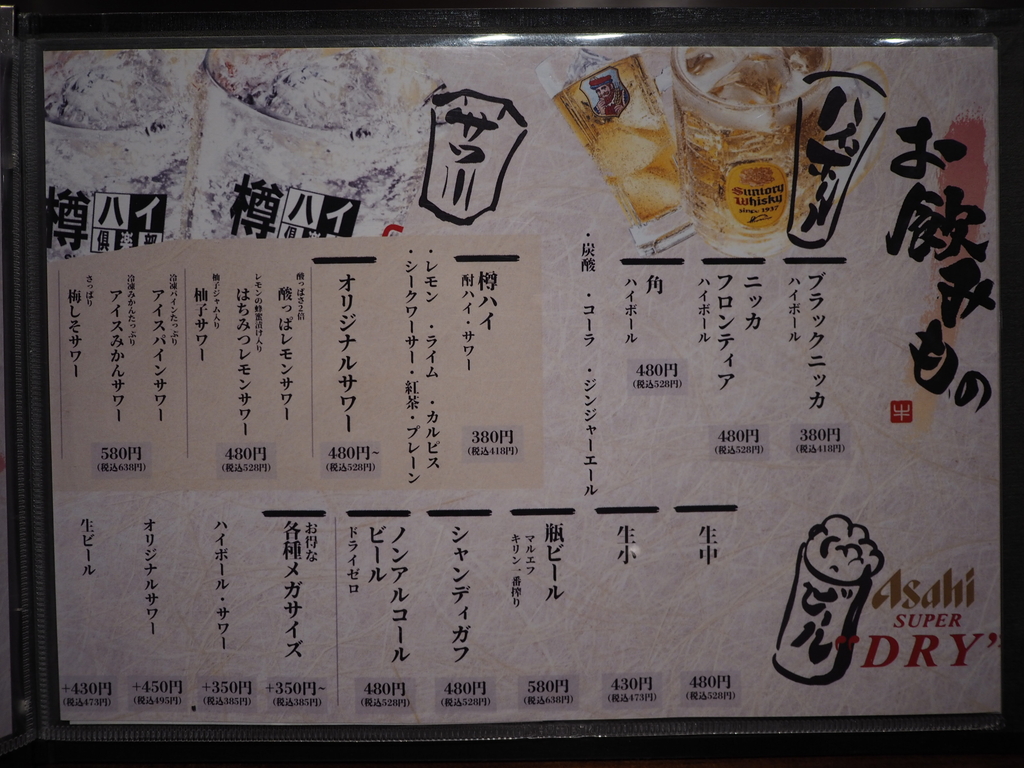 お飲みもの
ハイボール
Suntory
Whisky
since 1937
ブラックニッカ
ハイボール
380円
(税込418円)
ニッカ
フロンティア
ハイボール
480円
(税込528円)
角
ハイボール
480円
(税込528円)
・炭酸 ・コーラ ・ジンジャーエール
サワー
樽
ハイ
倶楽部
樽
ハイ
倶楽部
樽ハイ
酎ハイ・サワー
380円
(税込418円)
・レモン ・ライム ・カルピス
・シークワーサー・紅茶・プレーン
オリジナルサワー
480円~
(税込528円)
酸っぱさ2倍
酸っぱレモンサワー
レモンの蜂蜜漬け入り
はちみつレモンサワー
柚子ジャム入り
柚子サワー
480円
(税込528円)
冷凍パインたっぷり
アイスパインサワー
冷凍みかんたっぷり
アイスみかんサワー
さっぱり
梅しそサワー
580円
(税込638円)
ビール
Asahi
SUPER
"DRY"
生中
480円
(税込528円)
生小
430円
(税込473円)
瓶ビール
マルエフ
キリン一番搾り
580円
(税込638円)
シャンディガフ
480円
(税込528円)
ノンアルコール
ビール
ドライゼロ
480円
(税込528円)
お得な
各種メガサイズ
+350円~
(税込385円)
ハイボール・サワー
+350円
(税込385円)
オリジナルサワー
+450円
(税込495円)
生ビール
+430円
(税込473円)